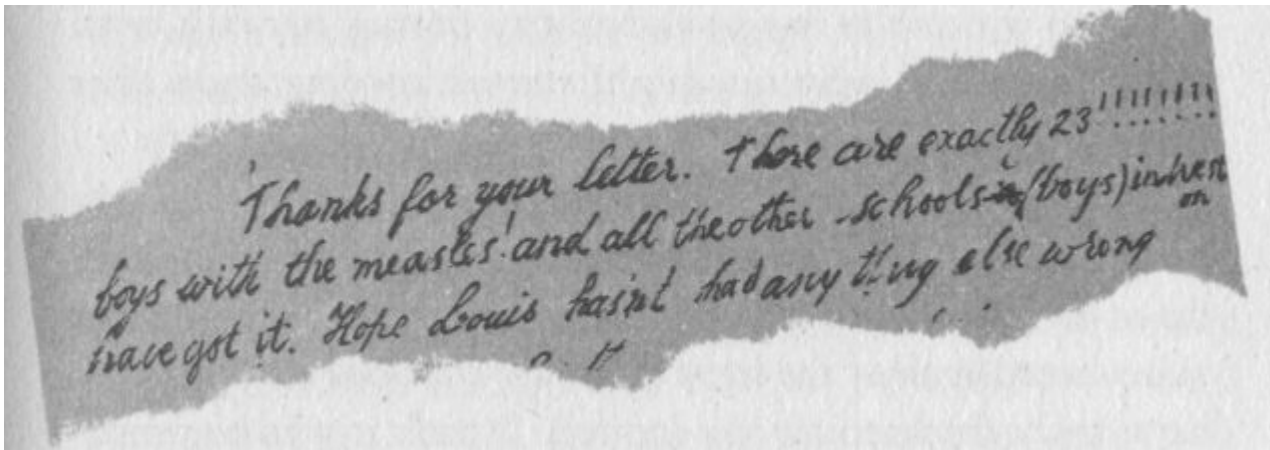 Thanks for your letter. There are exactly 23!!!!!!!!
boys with the measles! and all the other schools (boys) in West
on
have got it. Hope Louis hasn't had any thing else wrong